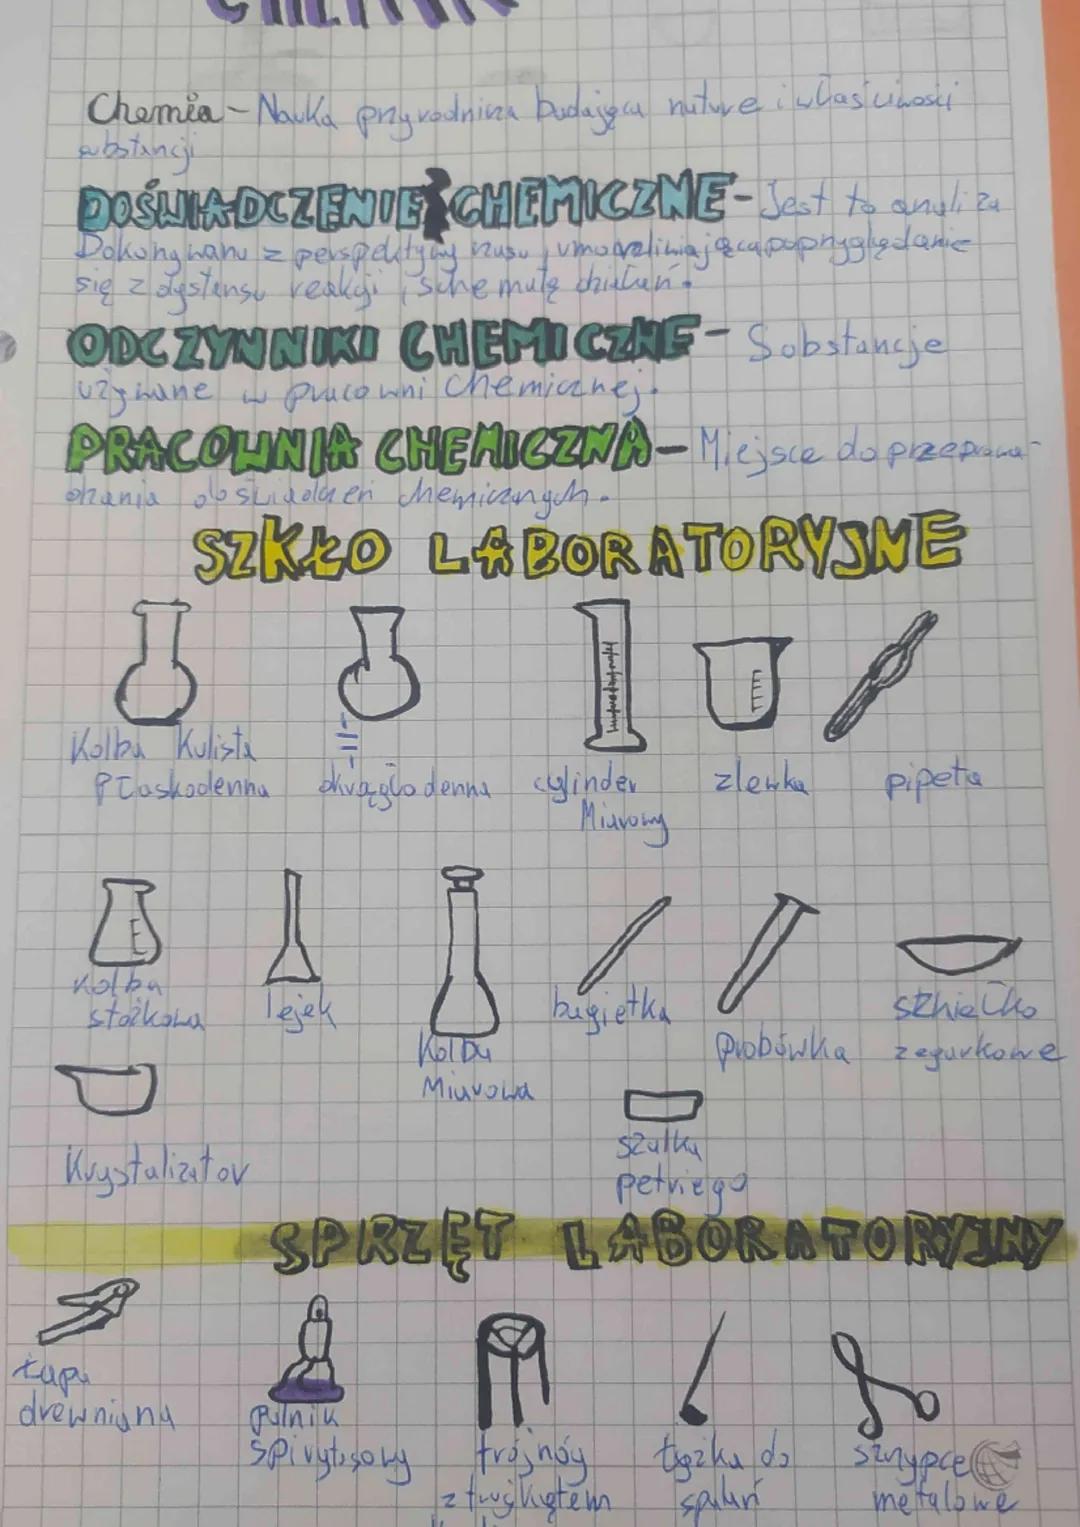 CHEMIA
Chemia - Nauka przyrodnicza badająca nature i właściwości
substancji
DOŚWIADCZENIE CHEMICZNE - Jest to analiza
Dokonywana z perspektywy czasu, umożliwiająca poprzyglądanie
się z dystansu reakcji, schematą działań.
ODCZYNNIKI CHEMICZNE - Substancje
używane w pracowni chemicznej.
PRACOWNIA CHEMICZNA - Miejsce do przeprowa-
dzania doświadczeń chemicznych.
SZKŁO LABORATORYJNE
Kolba Kulista -||-
Płaskodenna okrągłodenna cylinder zlewka pipeta
Miarowy
Kolba lejek bagietka szkiełko
stożkowa Kolba probówka zegarkowe
Miarowa
Krystalizator szalka
petriego
SPRZĘT LABORATORYJNY
Łapa
drewniana palnik
spirytusowy trójnóg łyżka do szczypce
z trójkątem spalań metalowe